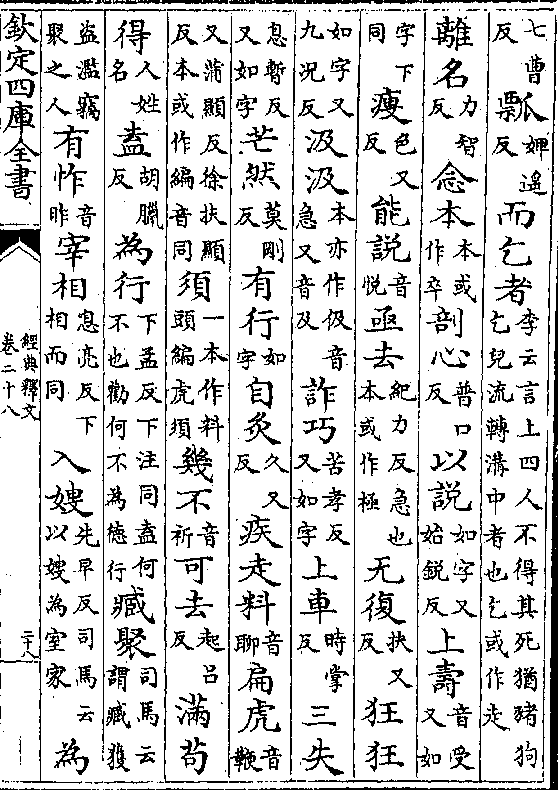 七曹反瓢婢遥反而乞者李云言上四人不得其死猶豬狗乞兒流轉溝中者也乞或作走
離名力智反念本本或作卒剖心普口反以說如字又始銳反上壽音受又如
字下同瘦色又反能說音悅亟去紀力反急也本或作極无復扶又反狂狂
如字又九況反汲汲本亦作伋音急又音及詐巧苦孝反又如字上車時掌反三失
息暫反又如字芒然莫剛反有行如字自灸久又反疾走料音聊扁虎音鞭
又蒲顯反徐扶顯反本或作編音同須一本作料頭編虎須幾不音祈可去起呂反滿茍
得人姓名盍胡臘反為行下孟反下注同盍何不也勸何不為德行臧聚司馬云謂臧獲
盜濫竊聚之人有怍音昨宰相息亮反下相而同入嫂先早反司馬云以嫂為室家為
欽定四庫全書
經典釋文
卷二十八